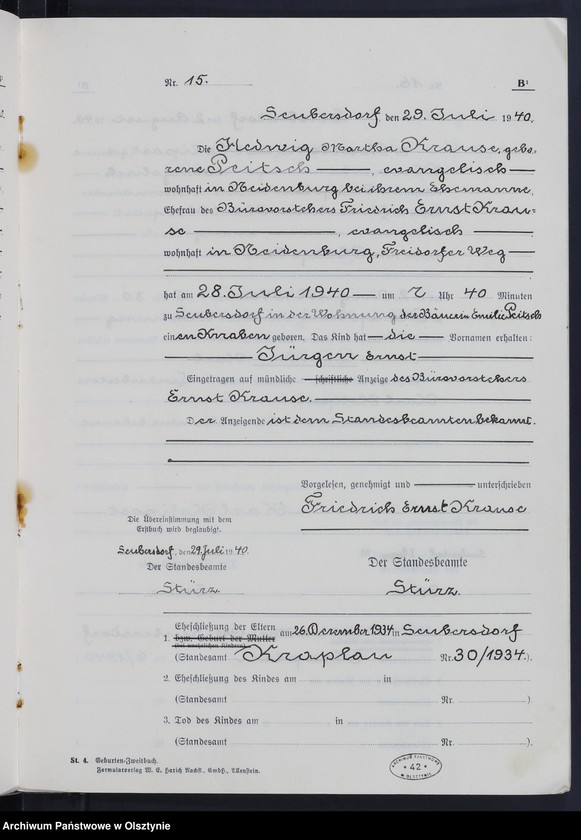 Nr. 15.
B¹
Seubersdorf, den 29. Juli 1940.
Die Hedwig Martha Krause, gebo-
rene Peitsch, evangelisch
wohnhaft in Neidenburg bei ihrem Ehemanne,
Ehefrau des Bürovorstehers Friedrich Ernst Krau-
se, evangelisch
wohnhaft in Neidenburg, Freidorfer Weg
hat am 28. Juli 1940 um 7 Uhr 40 Minuten
zu Seubersdorf in der Wohnung der Bäuerin Emilie Peitsch
einen Knaben geboren. Das Kind hat die Vornamen erhalten:
Jürgen Ernst
Eingetragen auf mündliche schriftliche Anzeige des Bürovorstehers
Ernst Krause.
Der Anzeigende ist dem Standesbeamten bekannt.
Vorgelesen, genehmigt und unterschrieben
Friedrich Ernst Krause
Die Übereinstimmung mit dem
Erstbuch wird beglaubigt.
Seubersdorf, den 29. Juli 1940.
Der Standesbeamte
Stürz
Der Standesbeamte
Stürz.
1. Eheschließung der Eltern
bzw. Geburt der Mutter
am 26. Dezember 1934 in Seubersdorf
(Standesamt Kraplau Nr. 30/1934.).
2. Eheschließung des Kindes am in
(Standesamt Nr. )
3. Tod des Kindes am in
(Standesamt Nr. ).
St. 4. Geburten-Zweitbuch.
Formularverlag W. E. Harich Nachf., GmbH., Allenstein.
ARCHIWUM PAŃSTWOWE
42
W OLSZTYNIE
Archiwum Państwowe w Olsztynie